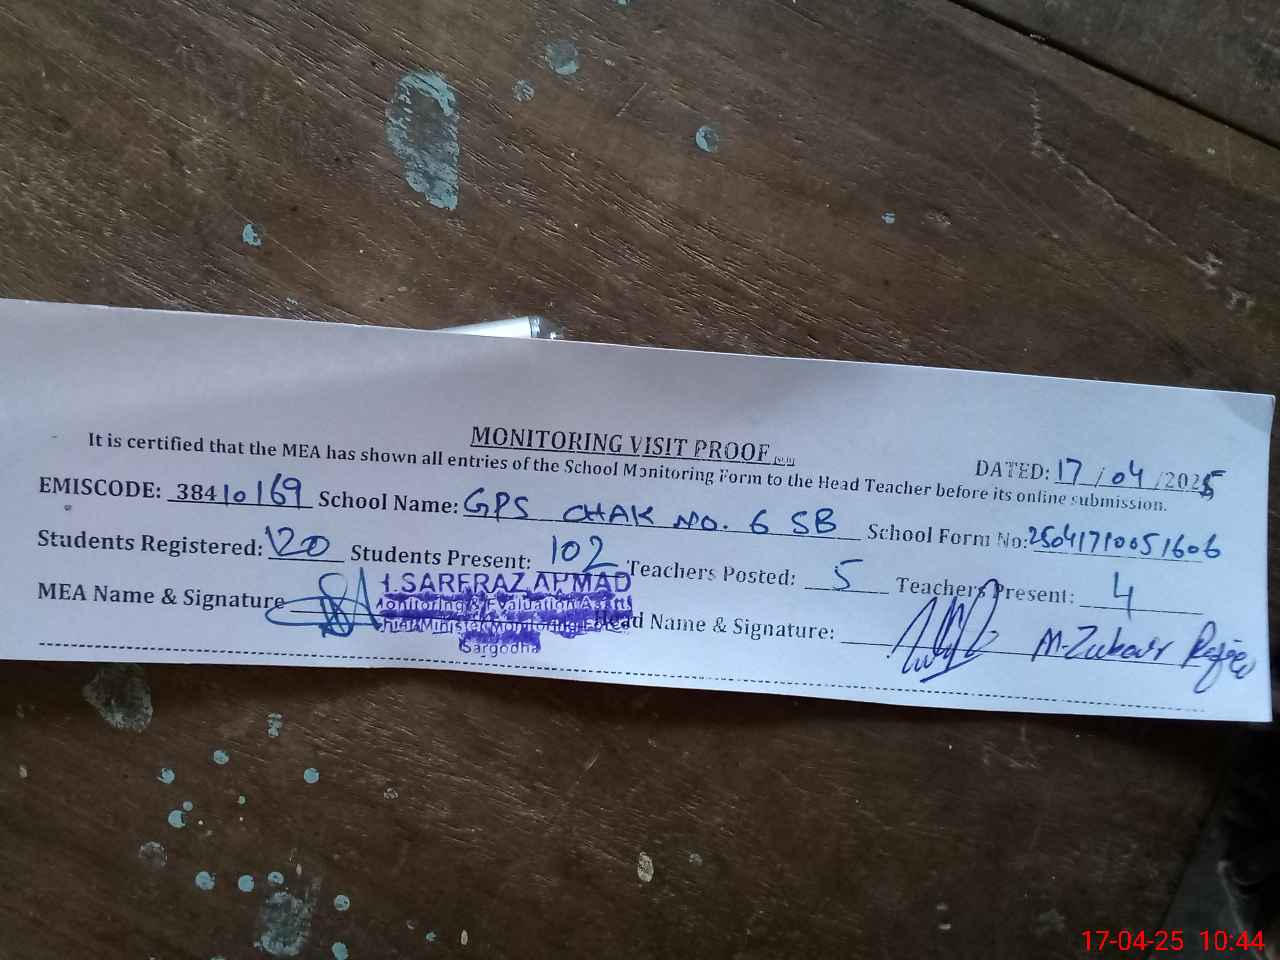 MONITORING VISIT PROOF
DATED: 17/04/2025
It is certified that the MEA has shown all entries of the School Monitoring Form to the Head Teacher before its online submission.
EMISCODE: 38410169 School Name: GPS CHAK NO. 6 SB School Form No: 25041710051606
Students Registered: 120 Students Present: 102 Teachers Posted: 5 Teachers Present: 4
MEA Name & Signature Head Name & Signature: M. Zubair
SARFRAZ AHMAD
Monitoring & Evaluation Assist
Chief Minister Monitoring Force
Sargodha
17-04-25 10:44